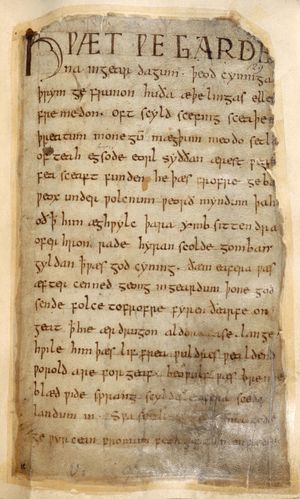 HǷÆT ǷE GARDE
na ingear dagum. þeod cyninga
þrym ge frunon huða æþelingas elle
fremedon. oft scyld scefing sceaþe
þreatum monegū mægþum meodo setl
of teah egsode eorl syððan ærest ƿear
fea sceaft funden he þæs frofre geba
ƿeox under ƿolcnum ƿeorð myndum þah
oð ꝥ him æghƿylc þara ymb sittendra
ofer hron rade hyran scolde gomban
gyldan ꝥ ƿæs god cyning. ðæm eafera ƿæs
æfter cenned geong ingeardum þone god
sende folce tofrofre fyren ðearfe on
geat ꝥ hie ær drugon aldor ase. lange
hƿile him þæs lif frea ƿuldres ƿealdend
ƿorold are for geaf. beoƿulf ƿæs breme
blæd ƿide sprang scyldes eafera scede
landum in. Sƿa sceal uma gode
ge ƿyrcean fromum feoh